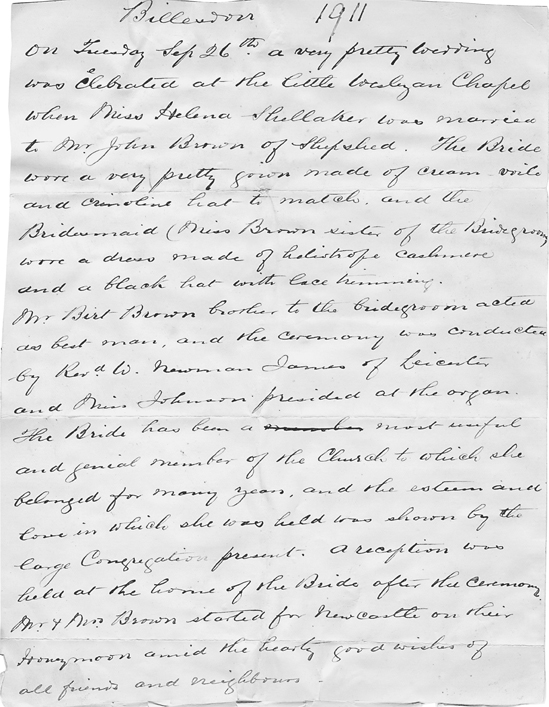 Billesdon 1911
On Tuesday Sep 26th a very pretty wedding
was Celebrated at the little Wesleyan Chapel
when Miss Helena Shellaker was married
to Mr John Brown of Shepshed. The Bride
wore a very pretty gown made of cream voile
and crinoline hat to match, and the
Bridesmaid (Miss Brown sister of the Bridegroom
wore a dress made of heliotrope cashmere
and a black hat with lace trimming.
Mr Birt Brown brother to the bridegroom acted
as best man, and the ceremony was conducted
by Revd W. Newman James of Leicester
and Miss Johnson presided at the organ.
The Bride has been a member most useful
and genial member of the Church to which she
belonged for many years, and the esteem and
love in which she was held was shown by the
large Congregation present. A reception was
held at the home of the Bride after the ceremony.
Mr & Mrs Brown started for Newcastle on their
Honeymoon amid the hearty good wishes of
all friends and neighbours.